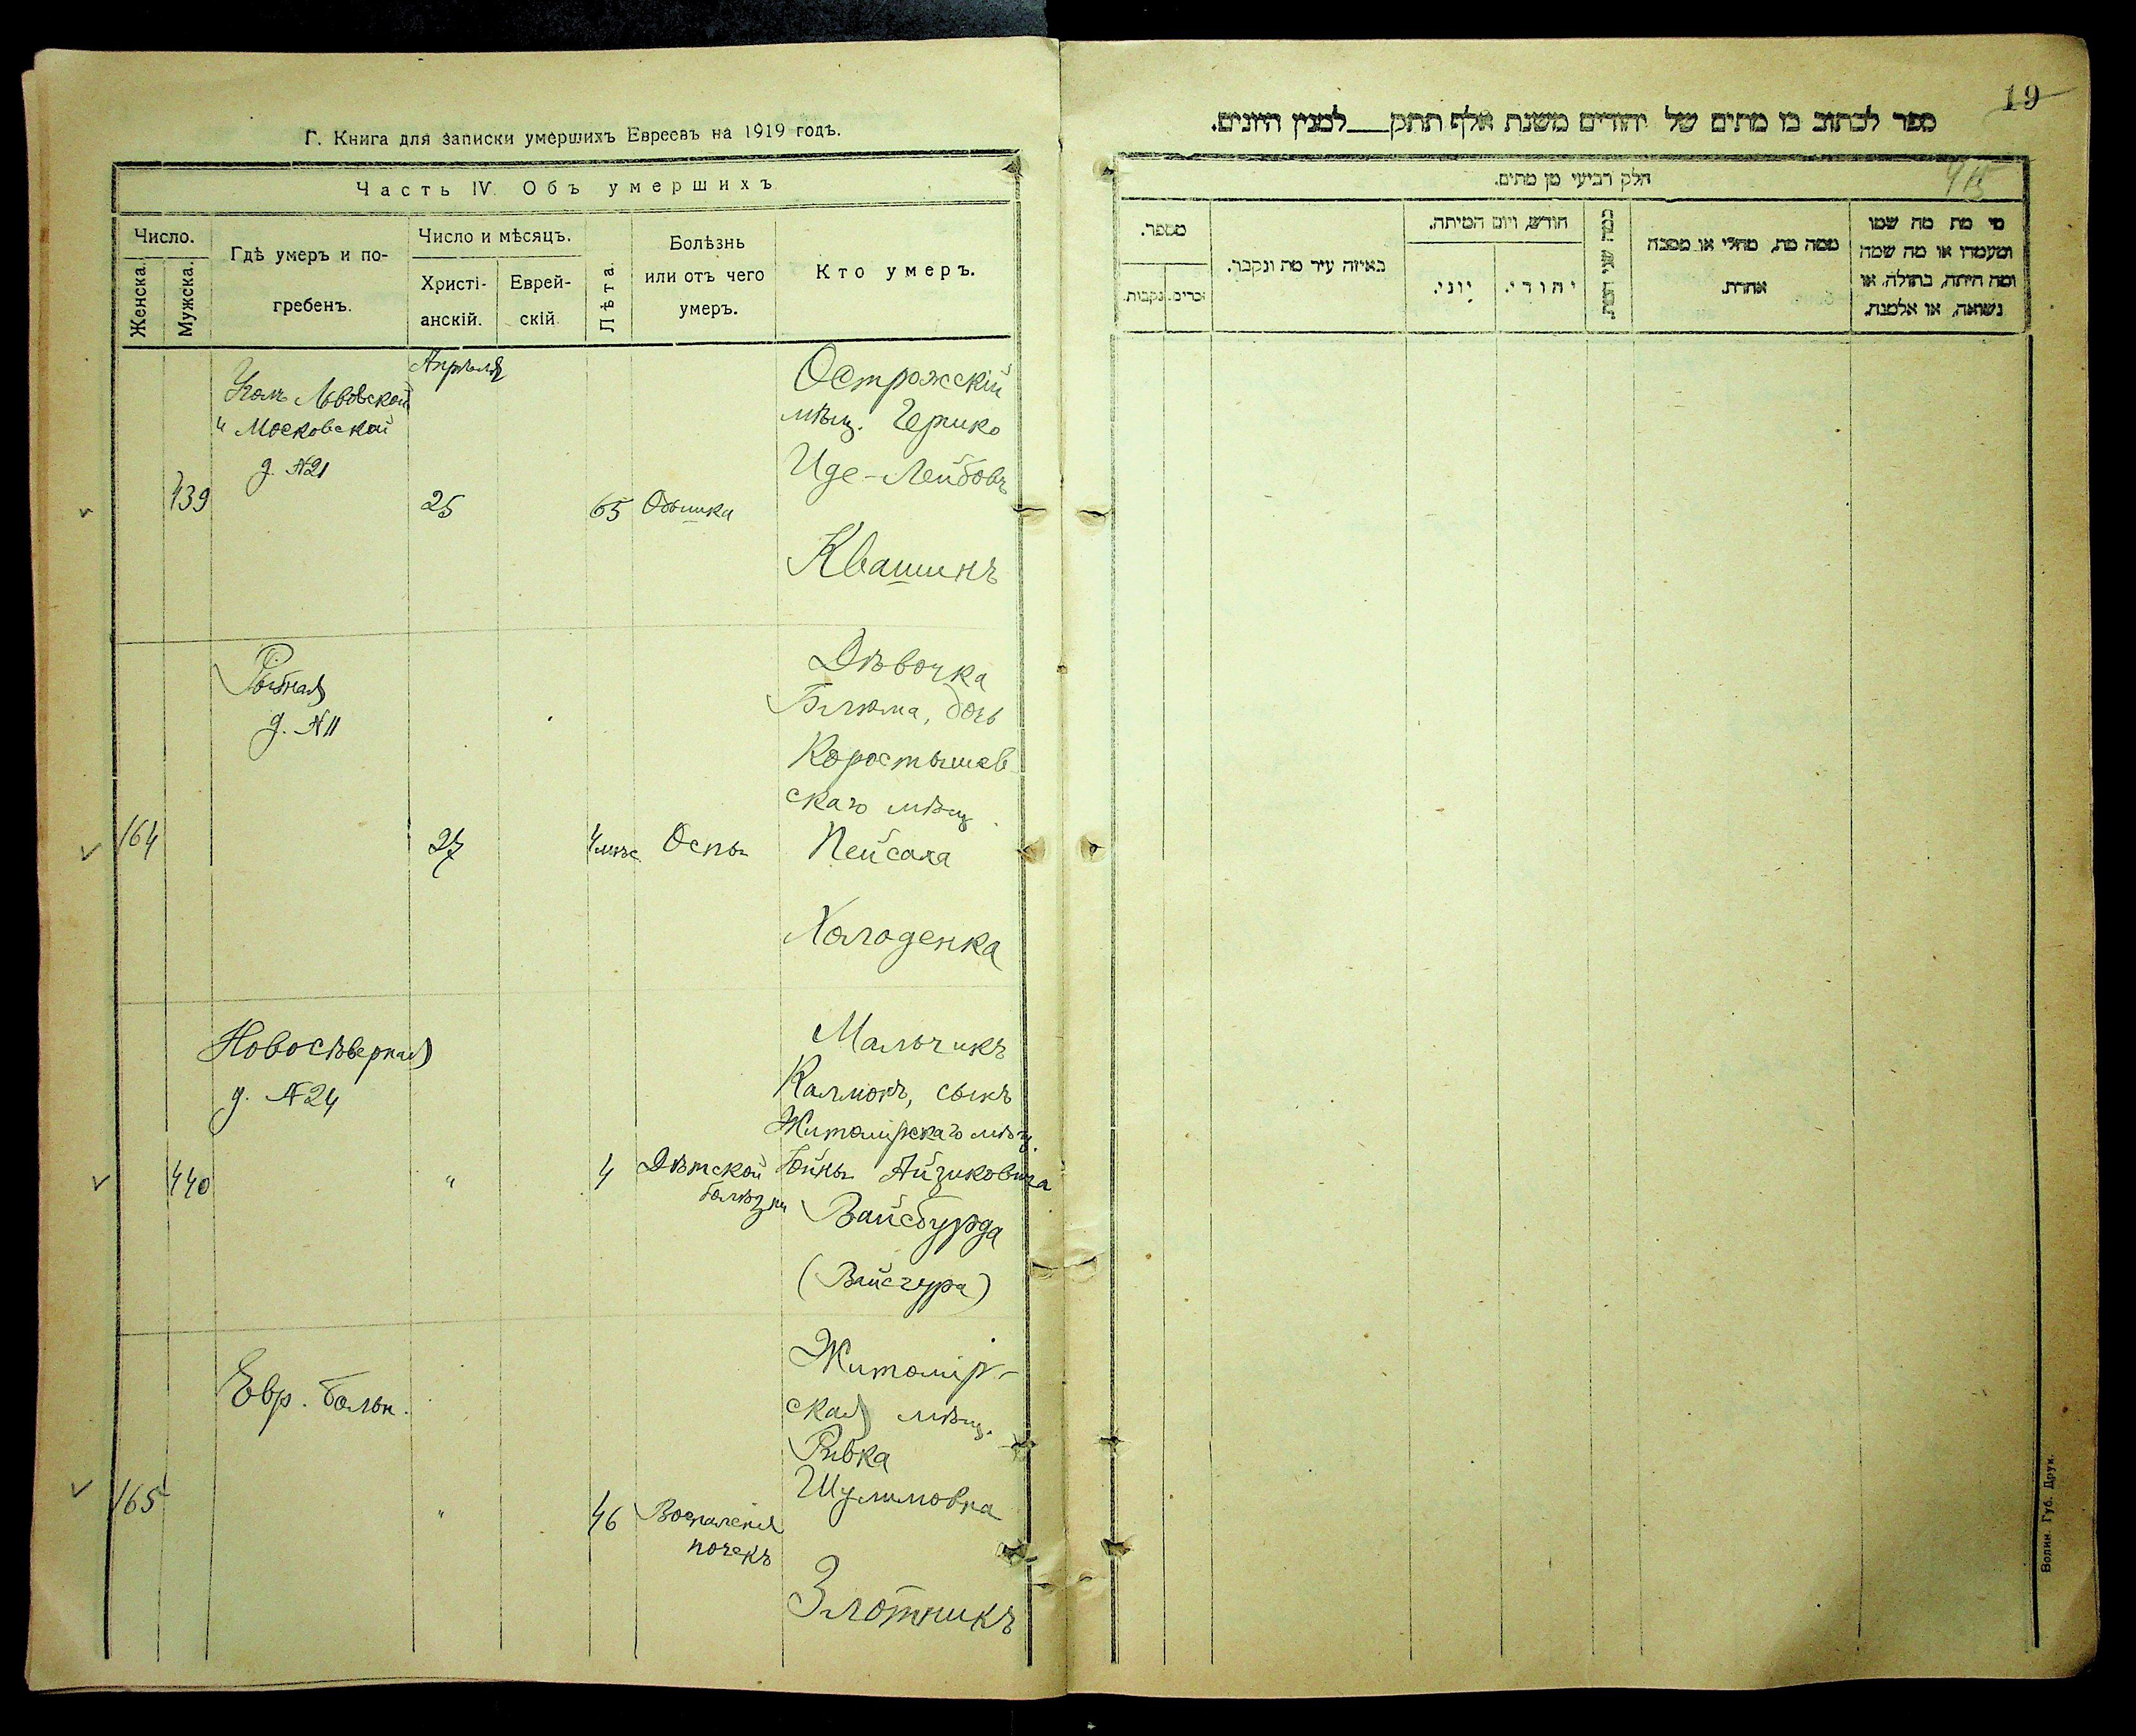 Г. Книга для записки умершихъ Евреевъ на 1919 годъ.
Часть IV. Объ умершихъ
Число.
Женска.
Мужска.
Гдѣ умеръ и по-
гребенъ.
Число и мѣсяцъ.
Христі-
анскій.
Еврей-
скій
Лѣта.
Болѣзнь
или отъ чего
умеръ.
Кто умеръ.
Апрѣля
Львовской
и Московской
д. №21
439
25
65
Острожскій
мѣщ.
Иде-Лейбовъ
Квашинъ
Рыбная
д. №11
164
27
4 мѣс.
Оспы
Дѣвочка
Блюма, дочь
Коростышев
скаго мѣщ.
Пейсаха
Холоденка
Новосѣверная
д. №24
440
"
4
Дѣтской
болѣзни
Мальчикъ
Калмонъ, сынъ
Житомірскаго мѣщ.
Айзиковича
Вайсбурда
(Вайсгура)
Евр. больн.
165
"
46
Воспаленія
почекъ
Житомір-
ская мѣщ.
Ривка
Шулимовна
Злотникъ
19
ספר לכתוב בו מתים של יהודים משנת אלף תתק__למנין היונים.
חלק רביעי מן מתים.
מספר.
זכרים.
נקבות.
באיזה עיר מת ונקבר.
חודש, ויום המיתה.
יוני.
יהודי.
ממה מת, מחלי או מסבה
אחרת.
מי מת מה שמו
ומעמדו או מה שמה
ומה היתה, בתולה, או
נשואה, או אלמנה.
Волин. Губ. Друк.